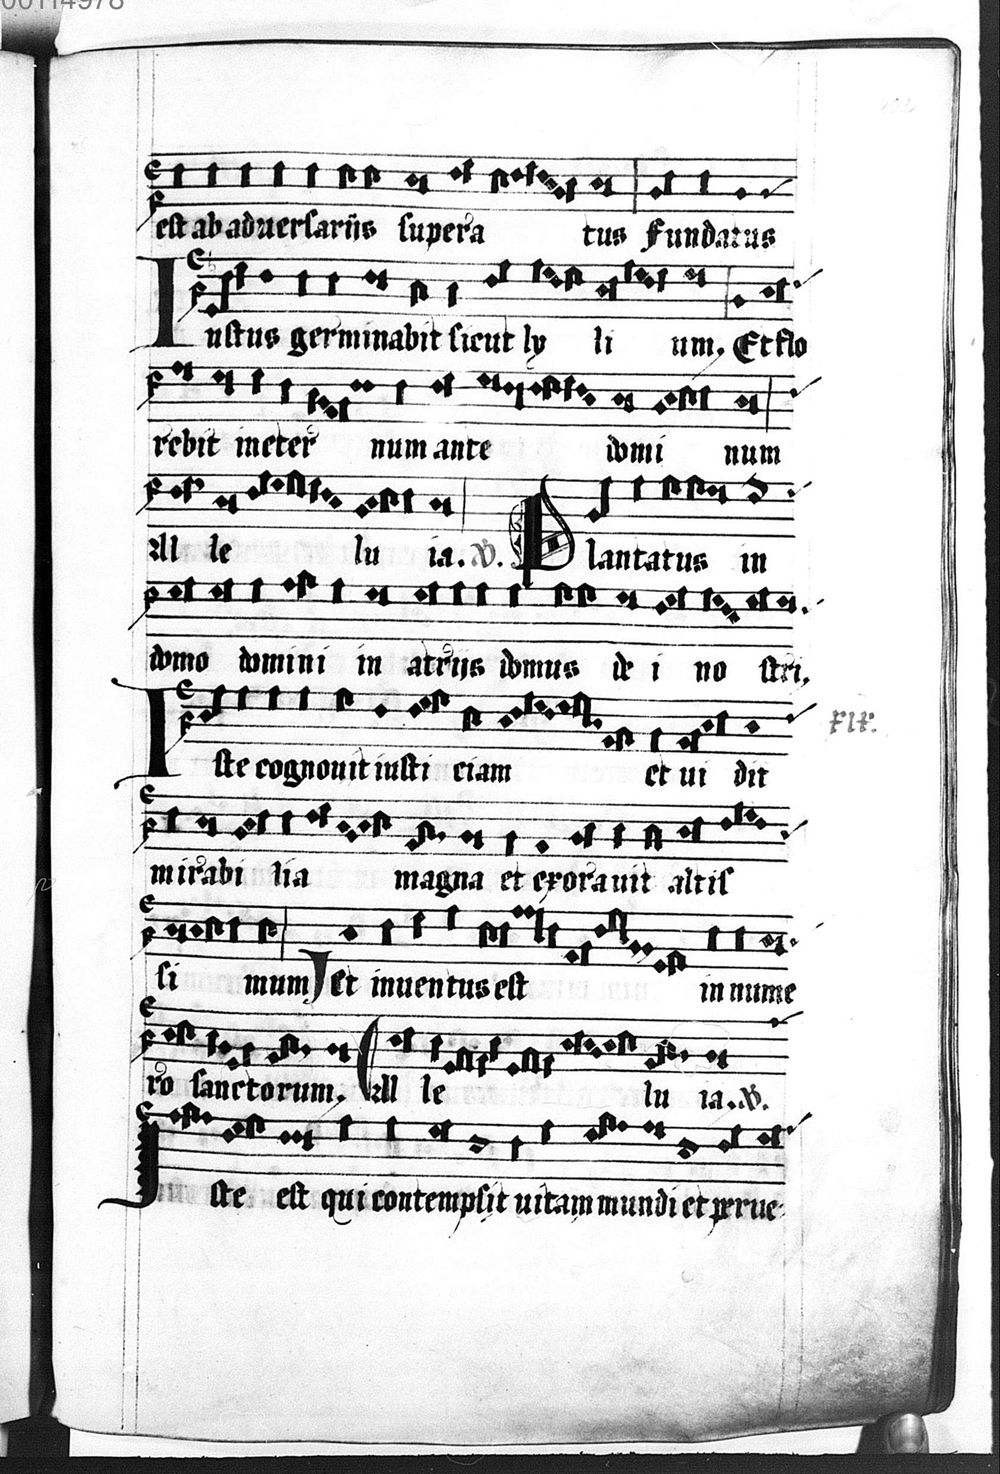 00114978
est ab aduersarijs supera tus Fundatus
Iustus germinabit sicut ly li um. Et flo
rebit ineter num ante domi num
All le lu ia. V. Plantatus in
domo domini in atrijs domus de i no stri.
Iste cognouit iusti ciam et ui dit
mirabi lia magna et exorauit altis
si mum Et inuentus est in nume
ro sanctorum. All le lu ia. V.
Iste est qui contempsit uitam mundi et perue